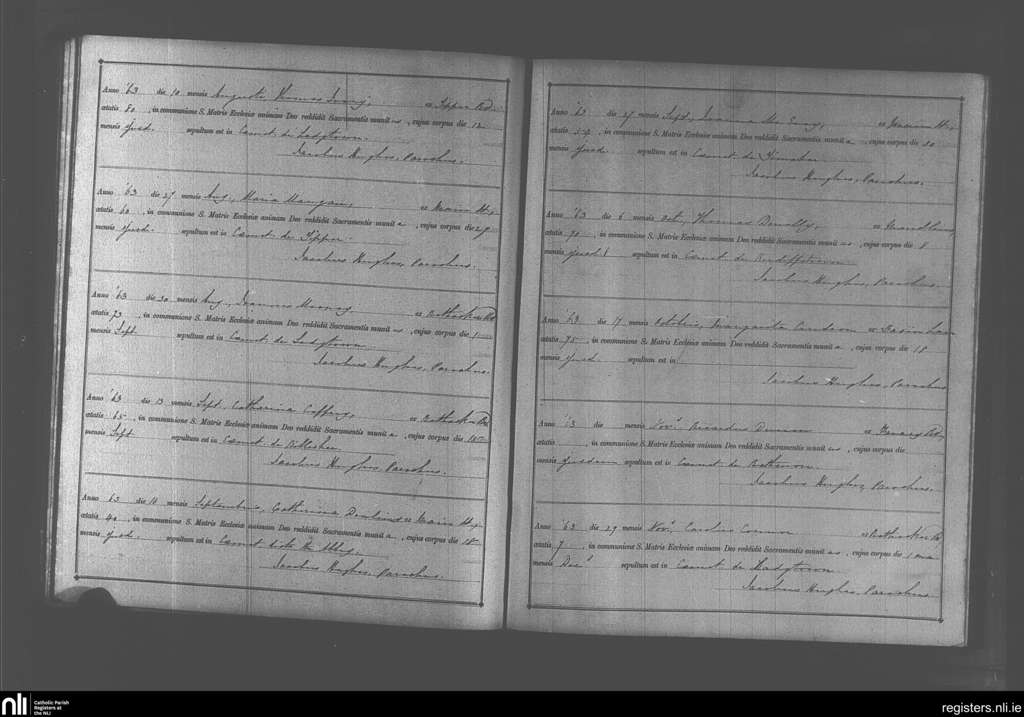 Anno '63 die 10 mensis Augusti Thomas ex Tipper Rd.
ætatis 80, in communione S. Matris Ecclesiæ animam Deo reddidit Sacramentis munit us, cujus corpus die 12
mensis Ejusd. sepultum est in Cæmet. de Ladytown.
Jacobus Hughes, Parochus.
Anno '63 die 27 mensis Aug., Maria Mangan, ex Main St.,
ætatis 60, in communione S. Matris Ecclesiæ animam Deo reddidit Sacramentis munit a, cujus corpus die 29
mensis Ejusd. sepultum est in Cæmet. de Tipper.
Jacobus Hughes, Parochus.
Anno '63 die 30 mensis Aug., Joannes Murray ex Rd
ætatis 73, in communione S. Matris Ecclesiæ animam Deo reddidit Sacramentis munit us, cujus corpus die 1
mensis Sept. sepultum est in Cæmet. de Ladytown.
Jacobus Hughes, Parochus.
Anno '63 die 13 mensis Sept. Catharina Caffrey, ex Rd
ætatis 65, in communione S. Matris Ecclesiæ animam Deo reddidit Sacramentis munit a, cujus corpus die 15
mensis Sept sepultum est in Cæmet. de
Jacobus Hughes, Parochus.
Anno '63 die 16 mensis Septembris, Catharina ex Main St.
ætatis 40, in communione S. Matris Ecclesiæ animam Deo reddidit Sacramentis munit a, cujus corpus die 18
mensis Ejusd. sepultum est in Cæmet. Abbey.
Jacobus Hughes, Parochus.
Anno '63 die 27 mensis Sept., Joanna Mc ex St.,
ætatis in communione S. Matris Ecclesiæ animam Deo reddidit Sacramentis munit a, cujus corpus die 30
mensis Ejusd. sepultum est in Cæmet. de
Jacobus Hughes, Parochus.
Anno '63 die 6 mensis Oct. Thomas ex
ætatis 70, in communione S. Matris Ecclesiæ animam Deo reddidit Sacramentis munit us, cujus corpus die 8
mensis Ejusd. sepultum est in Cæmet. de
Jacobus Hughes, Parochus.
Anno '63 die 17 mensis Octobris, Margarita ex Basin Lane
ætatis 75, in communione S. Matris Ecclesiæ animam Deo reddidit Sacramentis munit a, cujus corpus die 18
mensis Ejusd. sepultum est in
Jacobus Hughes, Parochus
Anno '63 die mensis Novr. Ricardus ex Rd,
ætatis , in communione S. Matris Ecclesiæ animam Deo reddidit Sacramentis munit us, cujus corpus die
mensis Ejusdem sepultum est in Cæmet. de
Jacobus Hughes, Parochus.
Anno '63 die 29 mensis Novr. Carolus Connor ex Rd
ætatis 7, in communione S. Matris Ecclesiæ animam Deo reddidit Sacramentis munit us, cujus corpus die 1 ma
mensis Decr sepultum est in Cæmet. de Ladytown
Jacobus Hughes, Parochus
nli Catholic Parish
Registers at
the NLI
registers.nli.ie